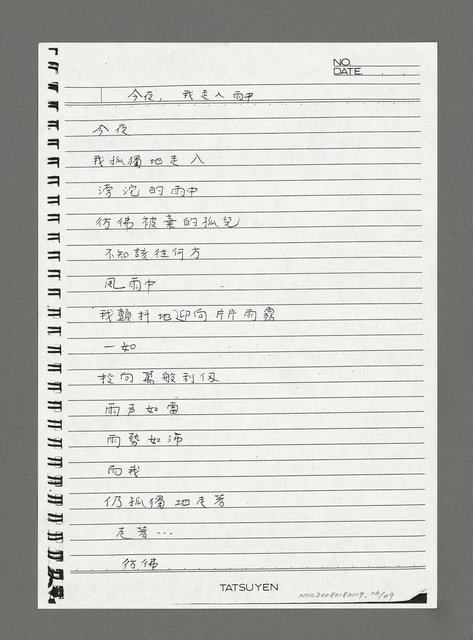 NO.
DATE
今夜，我走入雨中
今夜
我孤獨地走入
滂沱的雨中
彷彿被棄的孤兒
不知該往何方
風雨中
我顫抖地迎向片片雨霧
一如
投向萬般利刃
雨声如雷
雨勢如沛
而我
仍孤獨地走著
走著…
彷彿
TATSUYEN
NMTL20080182119.20/49